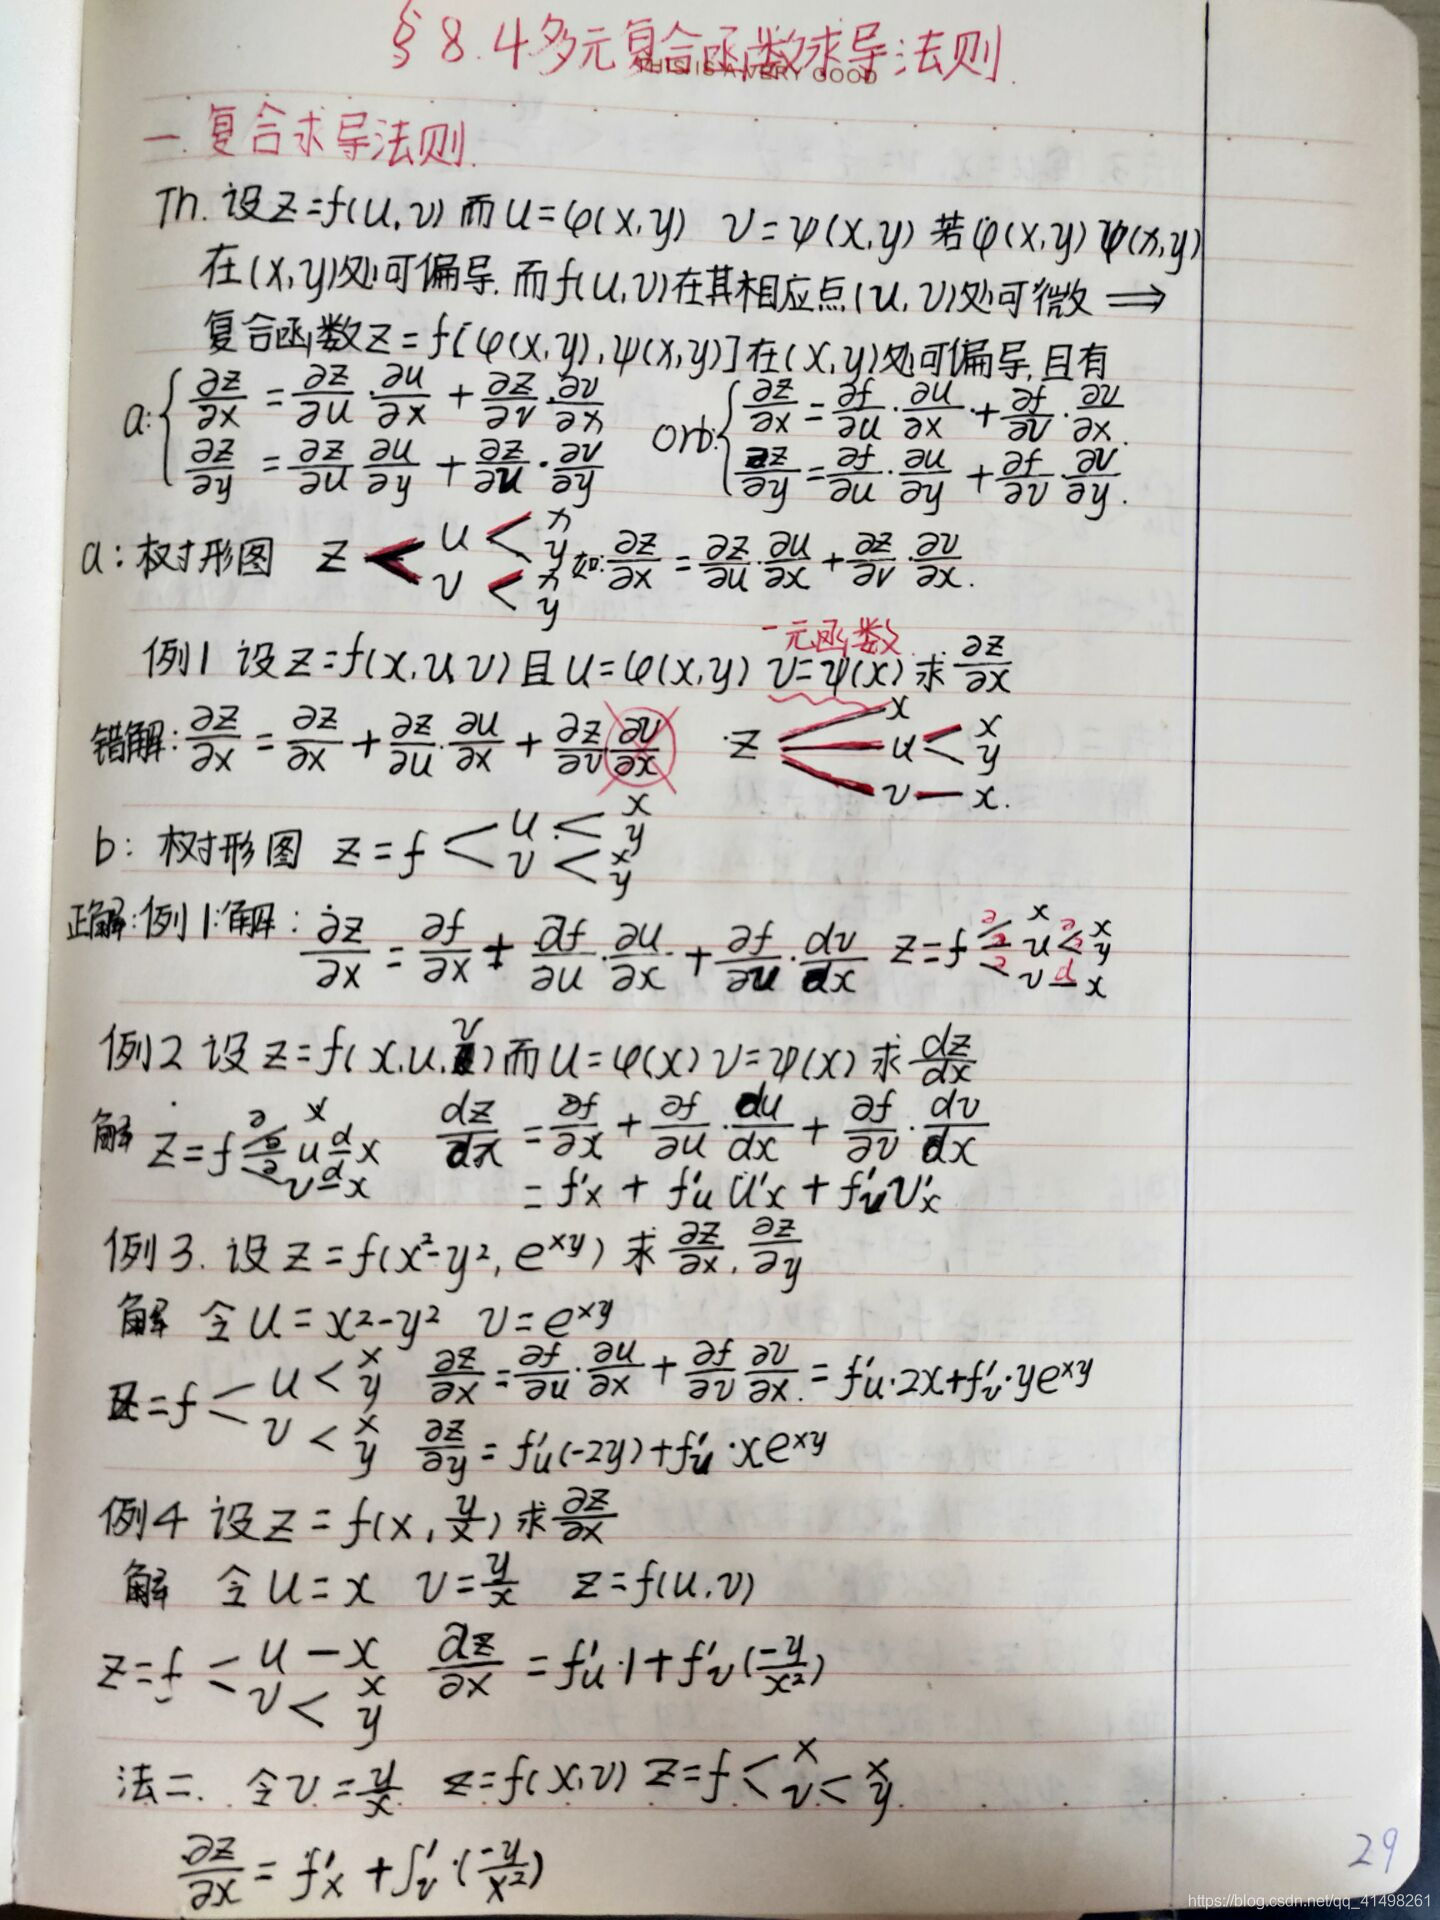 §8.4多元复合函数求导法则.
THIS IS A VERY GOOD
一.复合求导法则.
Th. 设z=f(u,v)而u=φ(x,y) v=ψ(x,y) 若φ(x,y) ψ(x,y)
在(x,y)处可偏导.而f(u,v)在其相应点(u,v)处可微 ⟹
复合函数z=f[φ(x,y),ψ(x,y)]在(x,y)处可偏导,且有
a:{ ∂z/∂x = ∂z/∂u·∂u/∂x + ∂z/∂v·∂v/∂x orb:{ ∂z/∂x = ∂f/∂u·∂u/∂x + ∂f/∂v·∂v/∂x.
∂z/∂y = ∂z/∂u ∂u/∂y + ∂z/∂u·∂v/∂y ∂z/∂y = ∂f/∂u·∂u/∂y + ∂f/∂v·∂v/∂y.
a:树形图 z < u < x y v < x y 如:∂z/∂x = ∂z/∂u·∂u/∂x + ∂z/∂v·∂v/∂x.
一元函数.
例1 设z=f(x,u,v)且u=φ(x,y) v=ψ(x) 求∂z/∂x
错解:∂z/∂x = ∂z/∂x + ∂z/∂u·∂u/∂x + ∂z/∂v ∂v/∂x ·z < x u < x y v — x.
b: 树形图 z=f < u < x y v < x y
正解:例1:解: ∂z/∂x = ∂f/∂x + ∂f/∂u·∂u/∂x + ∂f/∂u·dv/dx z=f ∂ x ∂ u ∂ x ∂ y ∂ v d x
例2 设z=f(x,u,v)而u=φ(x) v=ψ(x) 求dz/dx
解 z=f ∂ x ∂ u d x ∂ v d x dz/dx = ∂f/∂x + ∂f/∂u·du/dx + ∂f/∂v·dv/dx
= f'x + f'u u'x + f'v v'x
例3. 设z=f(x²-y², e^xy) 求∂z/∂x, ∂z/∂y
解 令u=x²-y² v=e^xy
z=f < u < x y v < x y ∂z/∂x = ∂f/∂u·∂u/∂x + ∂f/∂v ∂v/∂x. = f'u·2x+f'v·ye^xy
∂z/∂y = f'u(-2y)+f'u·xe^xy
例4 设z=f(x, y/x) 求∂z/∂x
解 令u=x v=y/x z=f(u,v)
z=f < u — x v < x y ∂z/∂x = f'u·1+f'v(-y/x²)
法二. 令v=y/x. z=f(x,v) z=f < x v < x y.
∂z/∂x = f'x + f'v·(-y/x²)
29
https://blog.csdn.net/qq_41498261